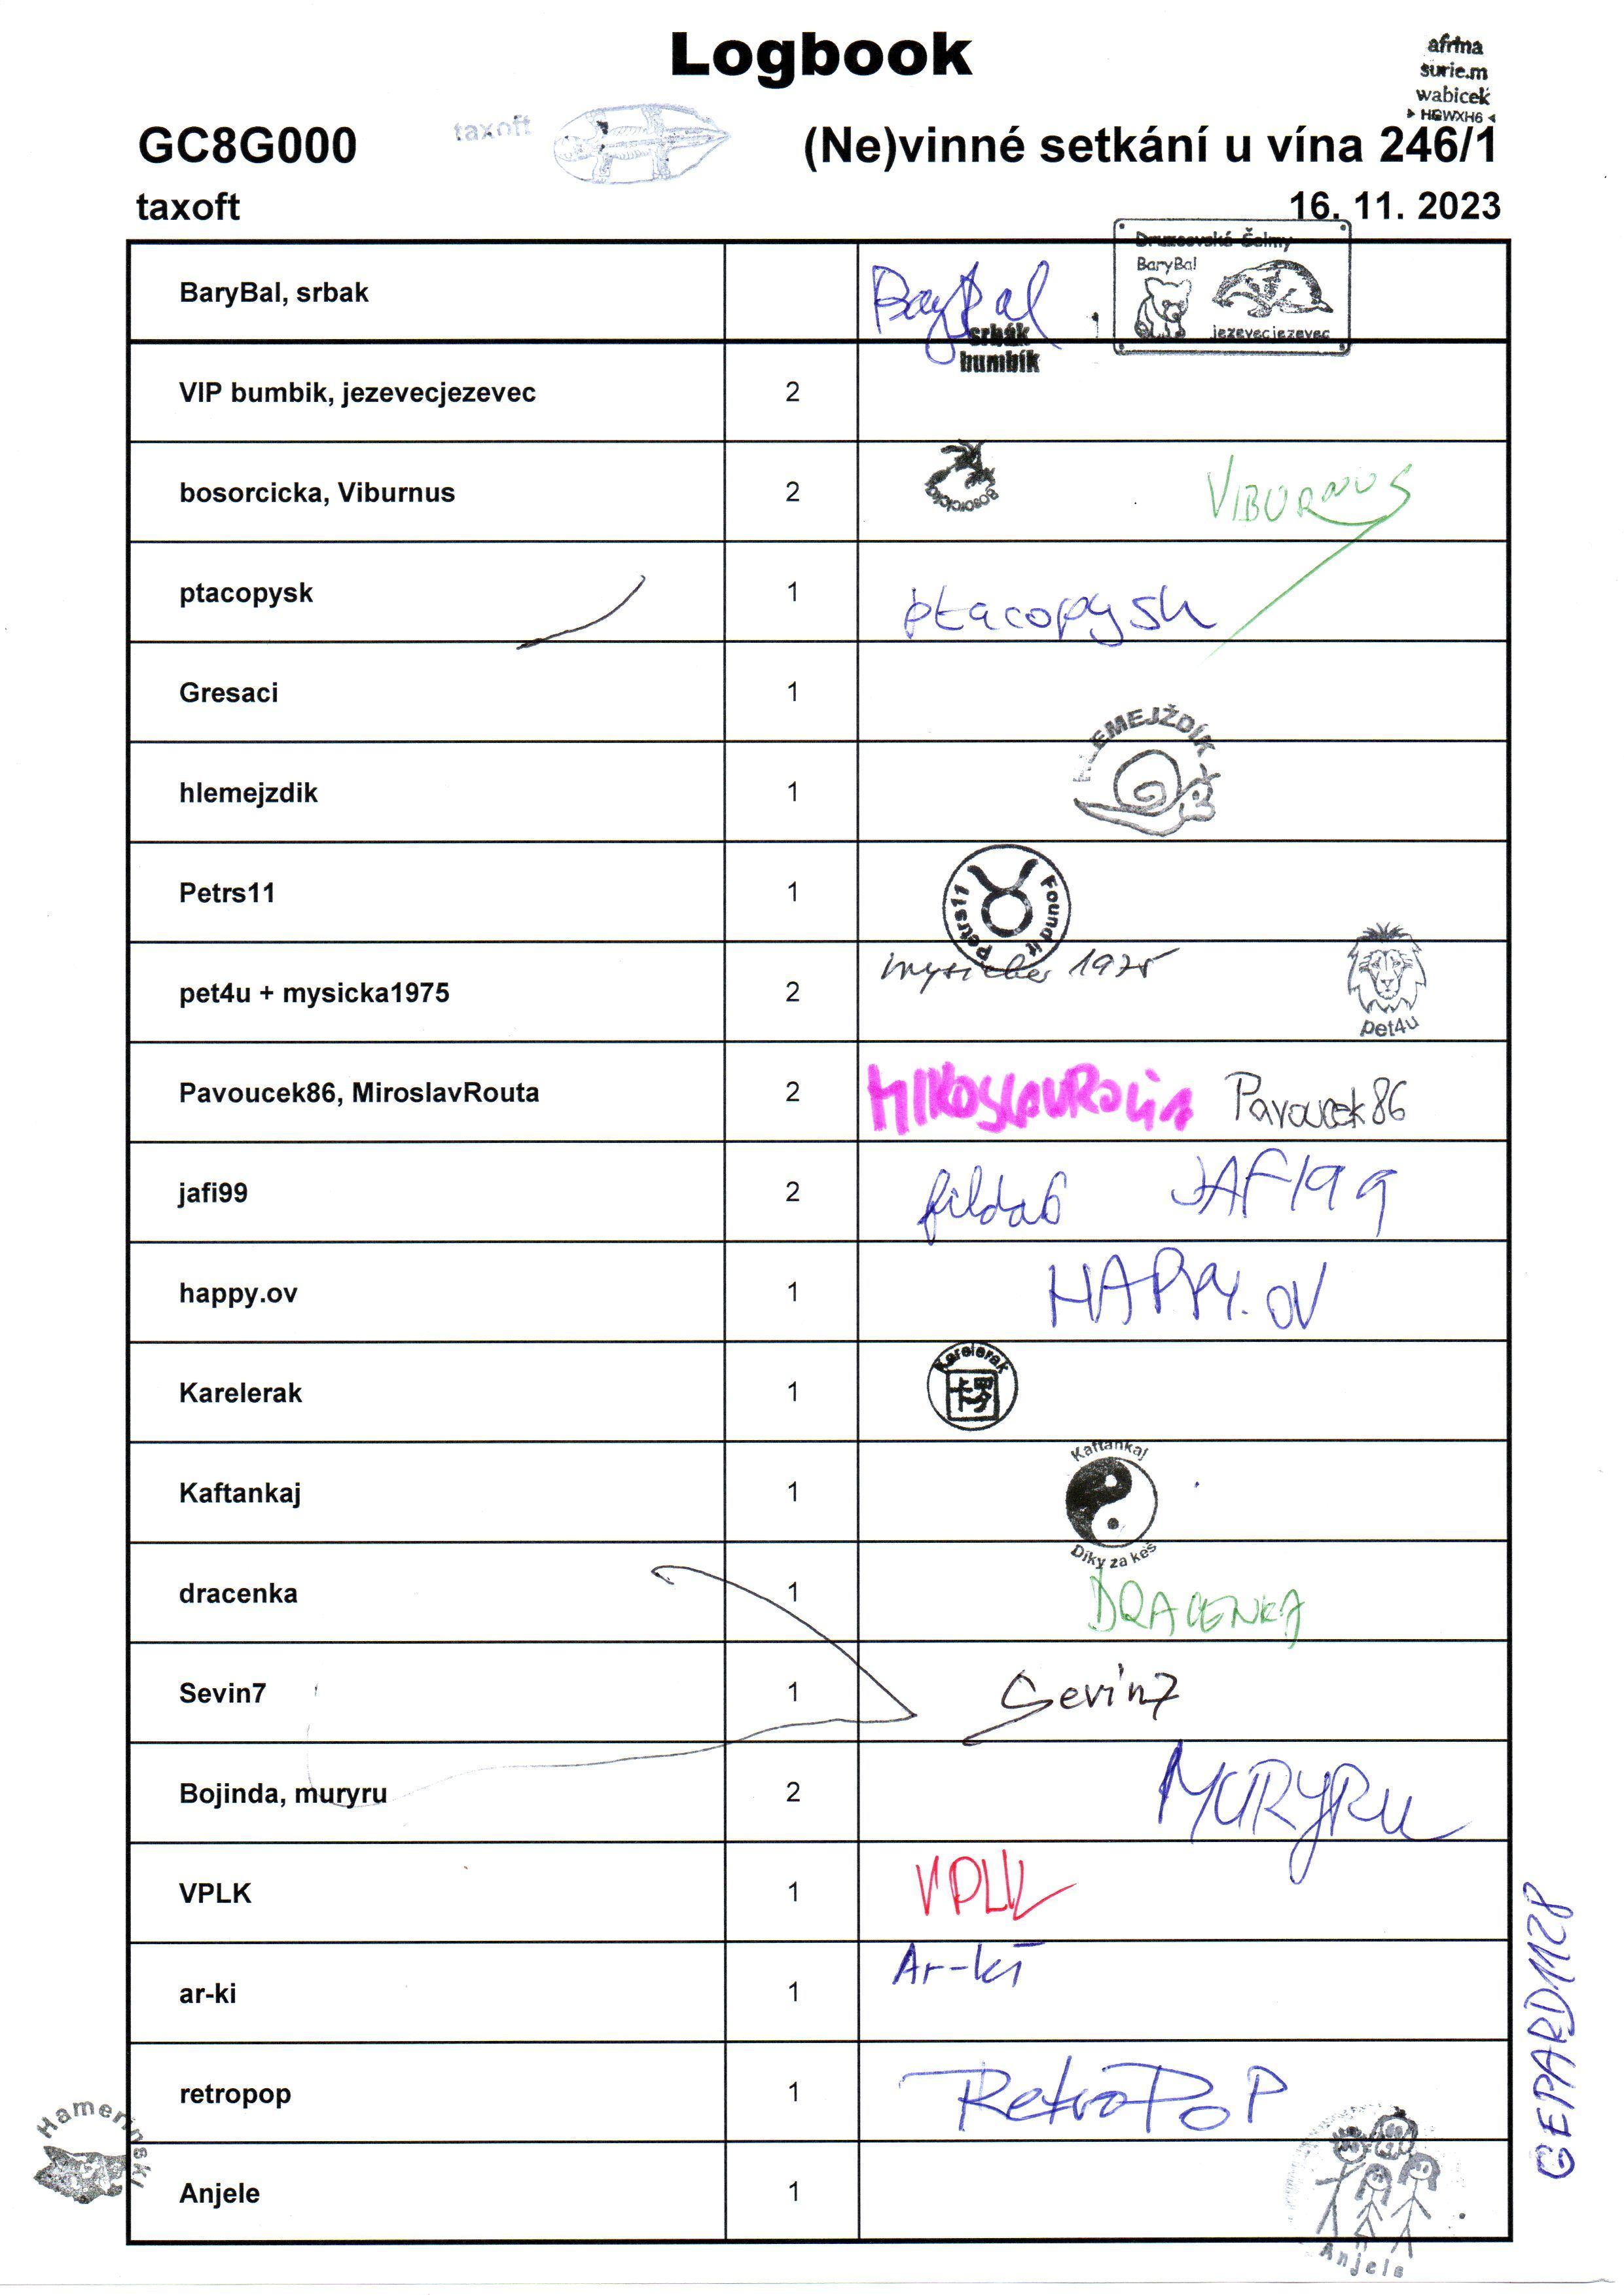 Logbook
afrma
surie.m
wabicek
▸ HGWXH6 ◂
GC8G000
taxoft
(Ne)vinné setkání u vína 246/1
taxoft
16. 11. 2023
BaryBal, srbak
BaryBal
srbák
bumbík
Druzcovské Šelmy
BaryBal
jezevecjezevec
VIP bumbik, jezevecjezevec 2
bosorcicka, Viburnus 2
VIBURNUS
ptacopysk 1 ptacopysk
Gresaci 1
hlemejzdik 1
HLEMEJŽDÍK
Petrs11 1
Petrs11 Found it
pet4u + mysicka1975 2 mysicka 1975
pet4u
Pavoucek86, MiroslavRouta 2 MIROSLAVROUTA Pavoucek86
jafi99 2 filda6 JAFI99
happy.ov 1 HAPPY.OV
Karelerak 1 Karelerak
Kaftankaj 1 Kaftankaj
Díky za keš
dracenka 1 DRACENKA
Sevin7 1 Sevin7
Bojinda, muryru 2 MURYRU
VPLK 1 VPLK
ar-ki 1 Ar-ki
retropop 1 RetroPoP
Anjele 1
Anjele
Hamerinski
GEPARD1128